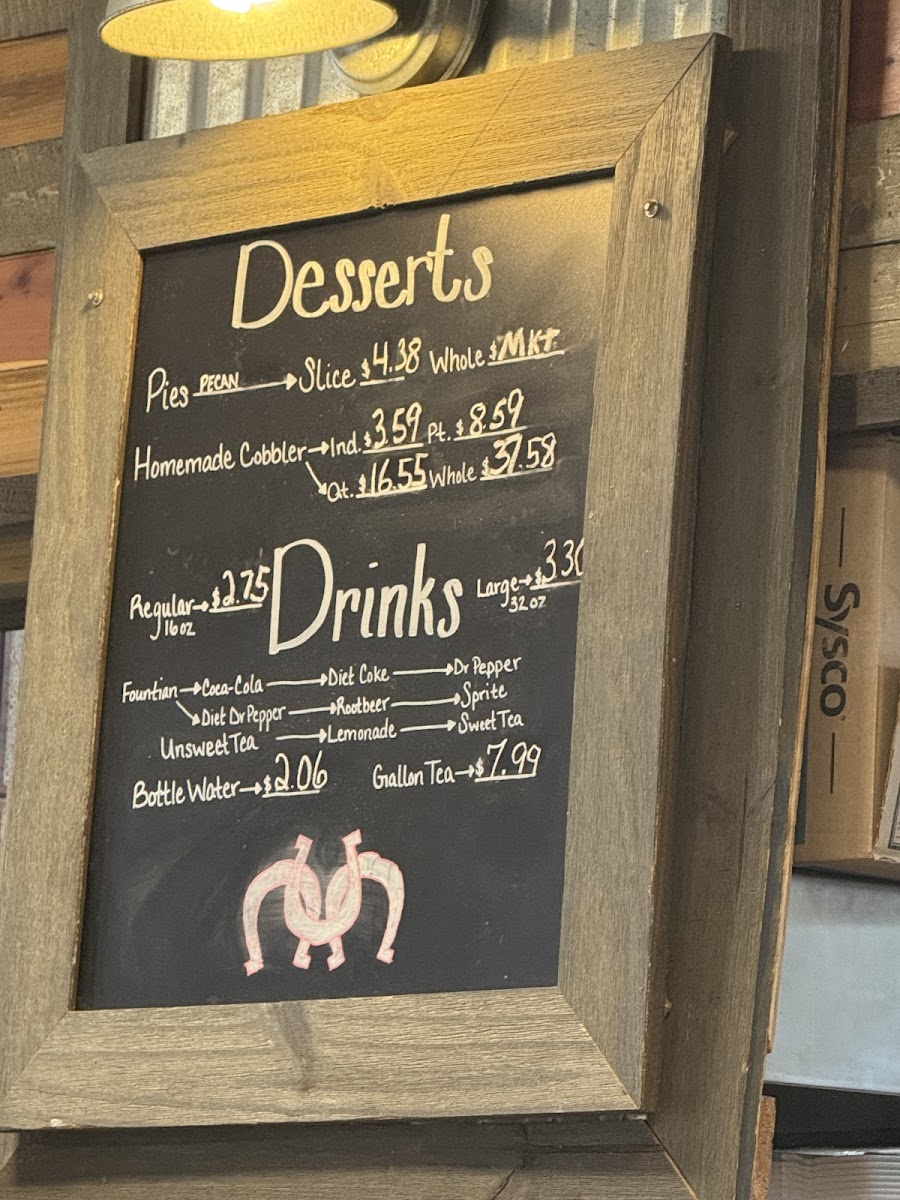 Desserts
Pies PECAN → Slice $4.38 Whole $MKT.
Homemade Cobbler → Ind. $3.59 Pt. $8.59
Qt. $16.55 Whole $37.58
Drinks
Regular → $2.75
16 oz
Large → $3.30
32 oz
Fountian → Coca-Cola → Diet Coke → Dr Pepper
Diet Dr Pepper → Rootbeer → Sprite
Unsweet Tea → Lemonade → Sweet Tea
Bottle Water → $2.06 Gallon Tea → $7.99
Sysco